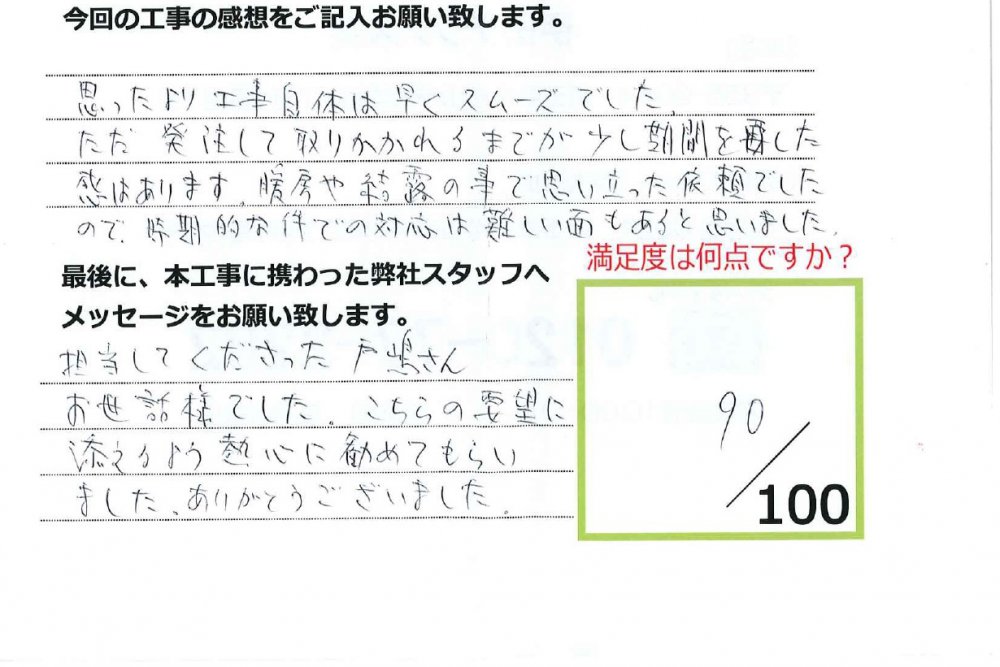 今回の工事の感想をご記入お願い致します。
思ったより工事自体は早くスムーズでした。
ただ発注して取りかかれるまでが少し期間を要した
感はあります。暖房や結露の事で思い立った依頼でした
ので、時期的な件での対応は難しい面もあると思いました。
満足度は何点ですか？
最後に、本工事に携わった弊社スタッフへ
メッセージをお願い致します。
担当してくださった戸嶋さん
お世話様でした。こちらの要望に
添えるよう熱心に勧めてもらい
ました。ありがとうございました。
90
100